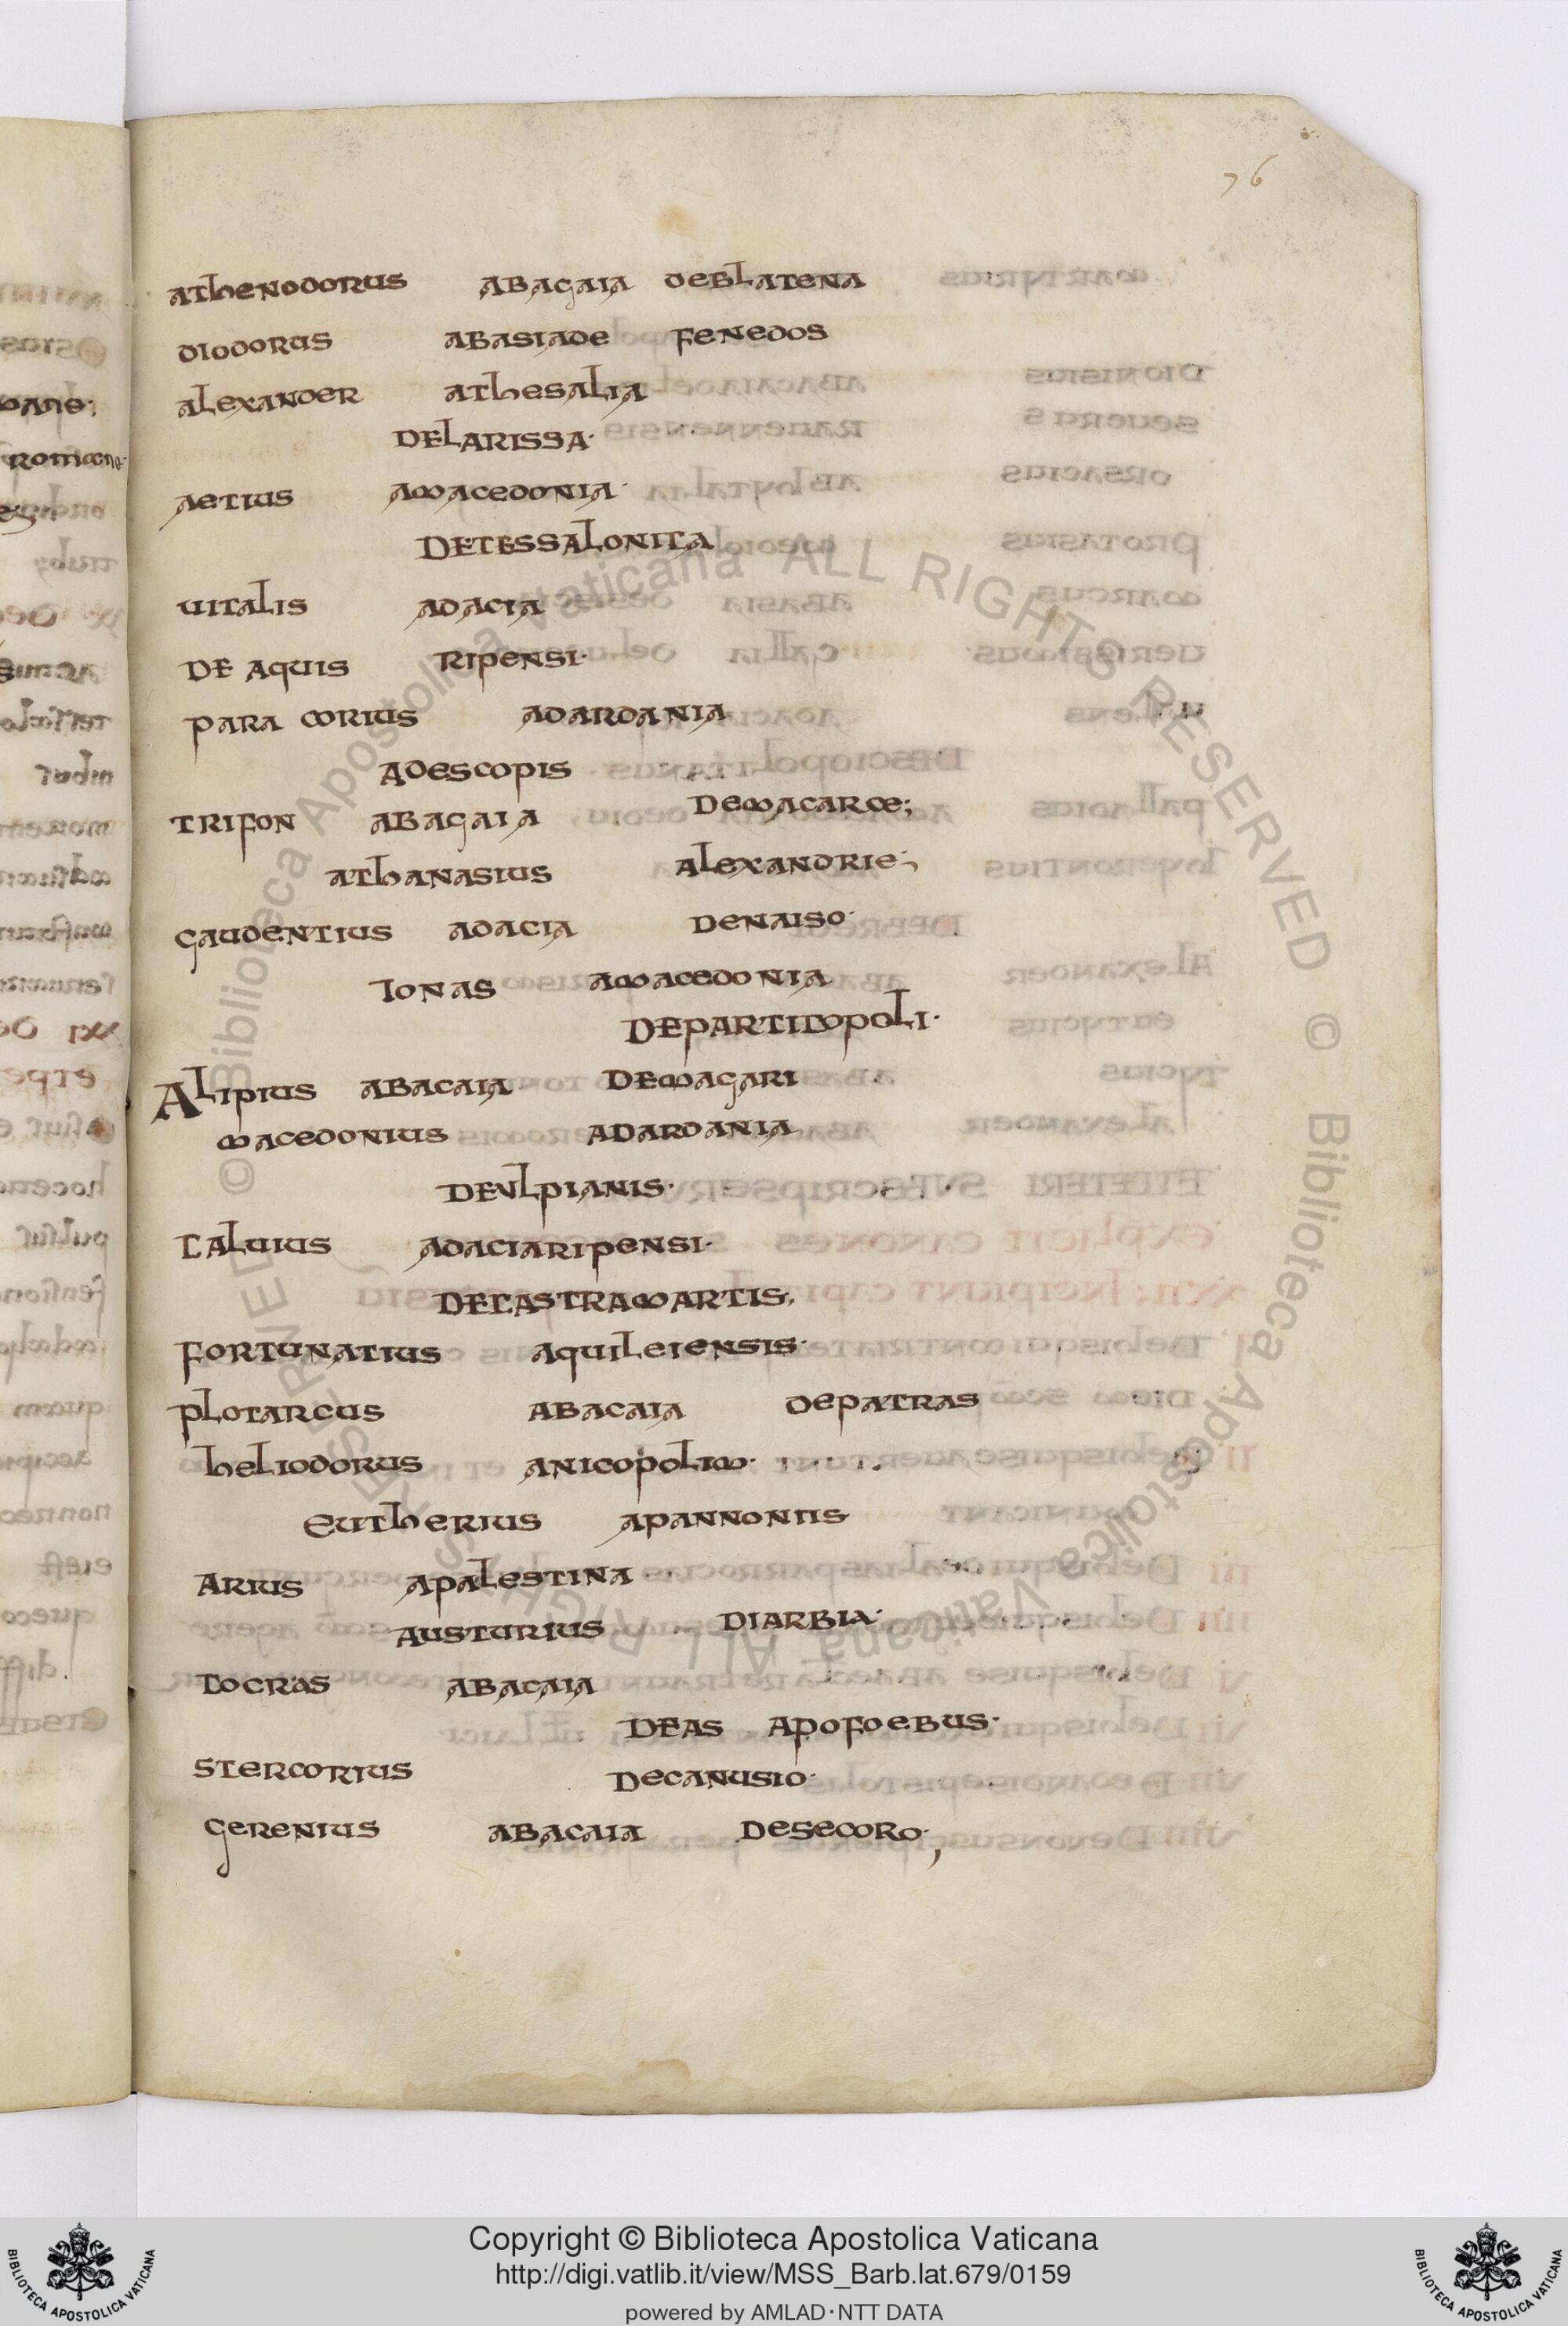 76
athenodorus abagaia deblatena
diodorus abasiade fenedos
alexander athesalia
delarissa·
aetius amacedonia·
detessalonica
uitalis adacia
de aquis ripensi·
para morius adardania
adescopis
trifon abagaia demacarœ;
athanasius alexandrie·,
gaudentius adacia denaiso·
ionas amacedonia
departimopoli·
Alipius abacaia demagari
macedonius adardania
deulpianis·
caluius adaciaripensi·
decastramartis,
fortunatius aquileiensis·
plotarcus abacaia depatras
heliodorus anicopolim·
eutherius apannoniis
arius apalestina
austurius diarbia·
socras abacaia
deas apofoebus·
stercorius decanusio·
gerenius abacaia desemoro·,
Copyright © Biblioteca Apostolica Vaticana
http://digi.vatlib.it/view/MSS_Barb.lat.679/0159
powered by AMLAD·NTT DATA
BIBLIOTECA APOSTOLICA VATICANA
BIBLIOTECA APOSTOLICA VATICANA